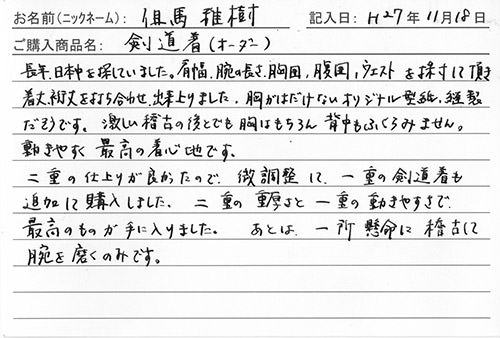 お名前(ニックネーム): 但馬 雅樹 記入日: H27年 11月 18日
ご購入商品名: 剣道着(オーダー)
長年、日本中を探していました。肩幅、腕の長さ、胸囲、腹囲、ウエストを採寸して頂き
着丈、裄丈を打ち合わせ、出来上りました。胸がはだけないオリジナル型紙、縫製
だそうです。激しい稽古の後でも胸はもちろん 背中もふくらみません。
動きやすく 最高の着心地です。
二重の仕上りが良かったので、微調整して、一重の剣道着も
追加にて購入しました。二重の重厚さと 一重の動きやすさで、
最高のものが手に入りました。 あとは、一所懸命に稽古して
腕を磨くのみです。